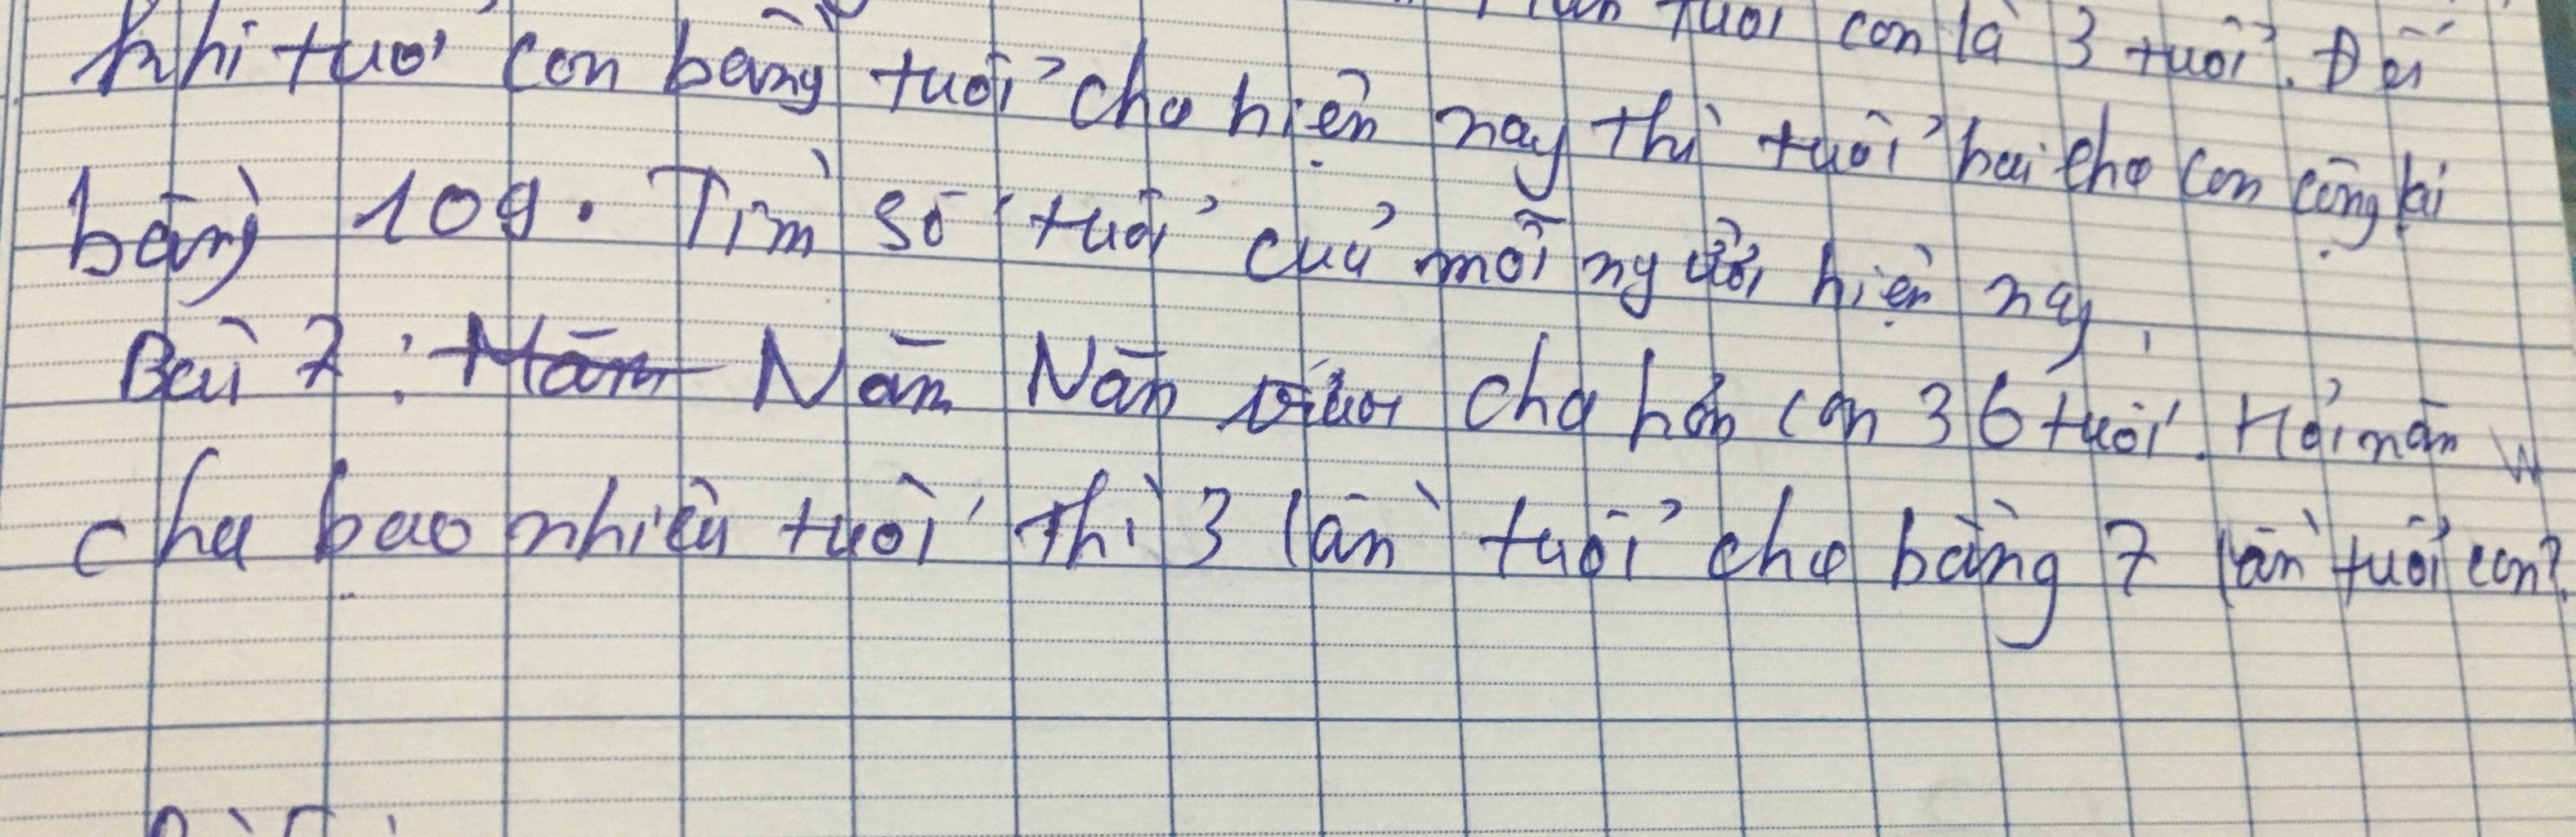 tuổi con là 3 tuổi. Đến
khi tuổi con bằng tuổi cha hiện nay thì tuổi hai cha con cộng lại
bằng 109. Tìm số tuổi của mỗi người hiện nay.
Bài 7: Năm Năm cha hơn con 36 tuổi. Hỏi năm
cha bao nhiêu tuổi thì 3 lần tuổi cha bằng 7 lần tuổi con?